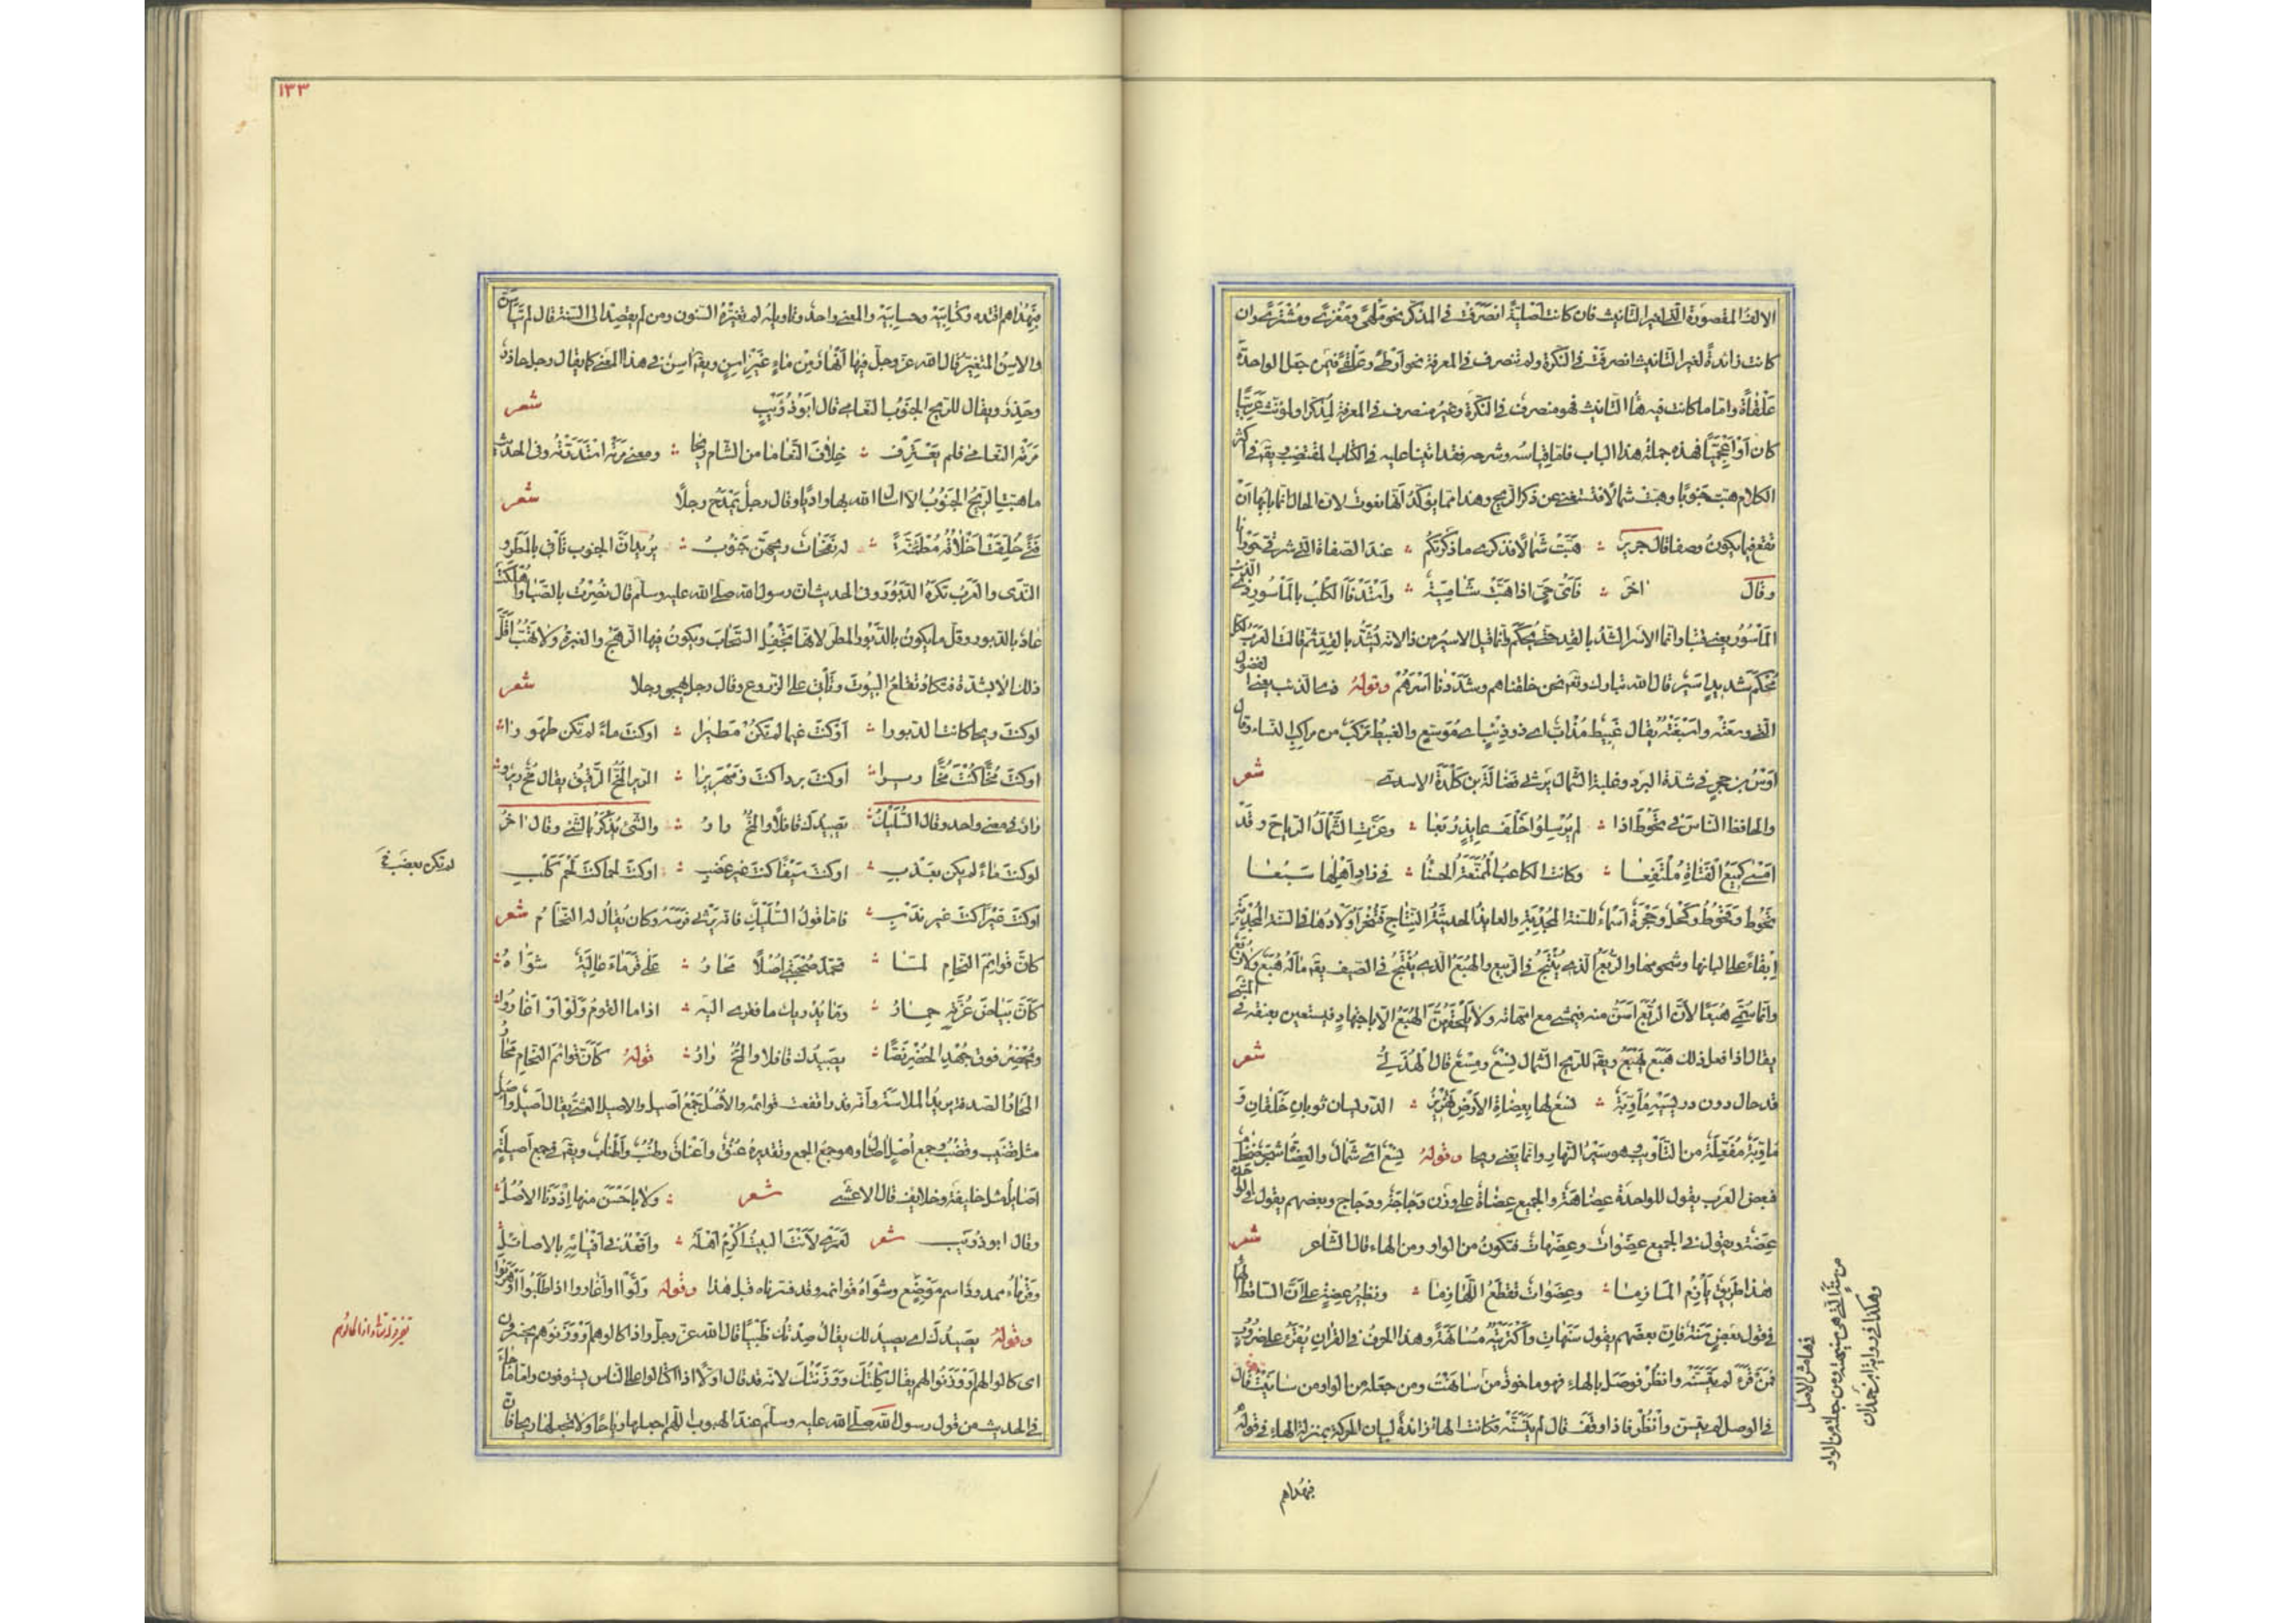 الالف المقصورة التى لغير التانيث فان كانت اصلية انصرفت فى المذكر نحو ملهى ومغزى ومشترى وان
كانت زائدة لغير التانيث انصرفت فى النكرة ولم تنصرف فى المعرفة نحو ارطى وعلقى فيمن جعل الواحدة
علقاة واما ما كانت فيه هاء التانيث فهو منصرف فى النكرة وغير منصرف فى المعرفة لمذكر او لمؤنث عربيا
كان او اعجميا فهذه جملة هذا الباب فاما قياسه وشرحه فقد اتينا عليه فى الكتاب المقتضب ويقع فى اكثر
الكلام هبت جنوبا وهبت شمالا فتستغنى عن ذكر الريح وهذا مما يؤكد انها نعوت لان الحال انما بابها ان
تقع فيما يكون وصفا قال جرير هبت شمالا فذكرى ما ذكرتكم عند الصفاة التى شرقى حورانا
وقال اخر فاى حى اذا هبت شامية واستدفأ الكلب بالمأسور ذى الذئب
المأسور يعنى قتبا وانما الاسر الشد بالقد حتى يحكم وانما قيل الاسير من ذا لانه يشد بالقد ثم قالت العرب لكل
محكم شديد اسر قال الله تبارك وتع نحن خلقناهم وشددنا اسرهم وقوله ذى الذئب يعنى الفضول
التى وسعته واسبغته يقال غبيط مذأب اى ذو ذئب اى موسع والغبيط مركب من مراكب النساء وقال
اوس بن حجر فى شدة البرد وغلبة الشمال يرثى فضالة بن كلدة الاسدى شعر
والحافظ الناس فى تحوط اذا لم يرسلوا خلف عايذ ربعا وعزت الشمال الرياح وقد
امسى كميع الفتاة ملتفعا وكانت الكاعب الممنعة الحسنا فى زاد اهلها سبعا
تحوط وقحوط وكحل وحجرة اسماء للسنة المجدبة والعايذ الحديثة النتاج فتنحر اولادها فى السنة المجدبة
ابقاء على البانها وشحومها والربع الذى ينتج فى الربيع والهبع الذى ينتج فى الصيف يقع ما له هبع ولا ربع
وانما سمى هبعا لان الربع اسن منه فيمشى مع امهاته ولا يلحقهن الهبع الا باجتهاد فيستعين بعنقه فى المشى
يقال اذا فعل ذلك هبع يهبع ويقع للريح الشمال نسع ومسع قال الهذلى شعر
قد حال دون دريسيه مأوبة نسع لها بعضاة الارض تهزيز الدريسان ثوبان خلقان و
مأوبة مفعلة من التأويب وهو سير النهار وانما يعنى ريحا وقوله نسع اى شمال والعضاه شجر
فبعض العرب يقول للواحدة عضاهة وللجميع عضاه على وزن دجاجة ودجاج وبعضهم يقول للواحدة
عضة ويقول فى الجميع عضوات وعضهات فتكون من الواو ومن الهاء قال الشاعر شعر
هذا طريق يأزم المآزما وعضوات تقطع اللهازما ونظير عضة على ان الساقط الهاء
فى قول بعض سنة فان بعضهم يقول سنهات واكتريته مسانهة وهذا الحرف فى القران يقرء على ضروب
فمن قرء لم يتسنه وانظر فوصل بالهاء فهو ماخوذ من سانهت ومن جعله من الواو من سانيت قال
فى الوصل لم يتسن وانظر فاذا وقف قال لم يتسنه وكانت الهاء زائدة لبيان الحركة بمنزلة الهاء فى قوله
فبهداهم
فى هامش الاصل
وهكذا فى رواية ابن حمدان
١٣٣
فبهداهم اقتده وكتابيه وحسابيه والمعنى واحد وتاويله لم تغيره السنون ومن لم يقصد الى السنة قال لم يتأسن
والاسن المتغير قال الله عز وجل فيها انهار من ماء غير اسن ويقع اسن فى هذا المعنى كما يقال رجل حاذر
وحذر ويقال للريح الجنوب النعامى قال ابو ذؤيب شعر
مرته النعامى فلم يعترف خلاف النعامى من الشام ريحا ومعنى مرته استدرته وفى الحديث
ما هبت الريح الجنوب الا اسال الله بها واديا وقال رجل يمدح رجلا شعر
فتى خلقت اخلاقه مطمئنة له نفحات ريحهن جنوب يريد ان الجنوب تأتى بالمطر و
الندى والعرب تكره الدبور وفى الحديث ان رسول الله صلى الله عليه وسلم قال نصرت بالصبا واهلكت
عاد بالدبور وقل ما يكون بالدبور المطر لانها تجفل السحاب ويكون فيها الرهج والغبرة ولا تهب اقل
ذلك الا بشدة فتكاد تقلع البيوت وتأتى على الزروع وقال رجل يهجو رجلا شعر
لو كنت ريحا كانت الدبورا او كنت غيما لم تكن مطيرا او كنت ماء لم تكن طهورا
او كنت مخا كنت مخا ريرا او كنت بردا كنت زمهريرا الرير المخ الرقيق يقال مخ رير و
رار فى معنى واحد وقال السليك يصيدك قافلا والمخ رار والشئ يذكر بالشئ وقال اخر
لو كنت ماء لم يكن بعذب او كنت سيفا كنت غير عضب او كنت لحما كنت لحم كلب
او كنت عيرا كنت غير ندب فاما قول السليك فانه يرثى فرسه وكان يقال له النحام شعر
كأن قوائم النحام لما تحمل صحبتى اصلا محار على قرماء عالية شواه
كأن بياض غرته خمار وما يدريك ما فقرى اليه اذا ما القوم ولوا او اغاروا
ويحضر فوق جهد الحضر نصا يصيدك قافلا والمخ رار قوله كأن قوائم النحام محار
المحار الصدفة يريد الملاسة وانه قد ارتفعت قوائمه والاصل جمع اصيل والاصيل العشى يقال اصيل واصل
مثل قضيب وقضب وجمع اصل اصال وهو جمع الجمع وتقديره عنق واعناق وطنب واطناب ويقع فى جمع اصيلة
اصايل مثل خليفة وخلايف قال الاعشى شعر ولا باحسن منها اذ دنا الاصل
وقال ابو ذويب شعر لعمرى لانت البيت اكرم اهله واقعد فى افيائه بالاصائل
وقرماء ممدودا اسم موضع وشواه قوائمه وقد فسرناه قبل هذا وقوله ولوا او اغاروا اذا طلبوا او هربوا
وقوله يصيدك اى يصيد لك يقال صدتك ظبيا قال الله عز وجل واذا كالوهم او وزنوهم يخسرون
اى كالوا لهم او وزنوا لهم يقال كلتك ووزنتك لانه قد قال اولا اذا اكتالوا على الناس يستوفون واما ما جاء
فى الحديث من قول رسول الله صلى الله عليه وسلم عند الهبوب اللهم اجعلها رياحا ولا تجعلها ريحا فان
لم تكن بعضب